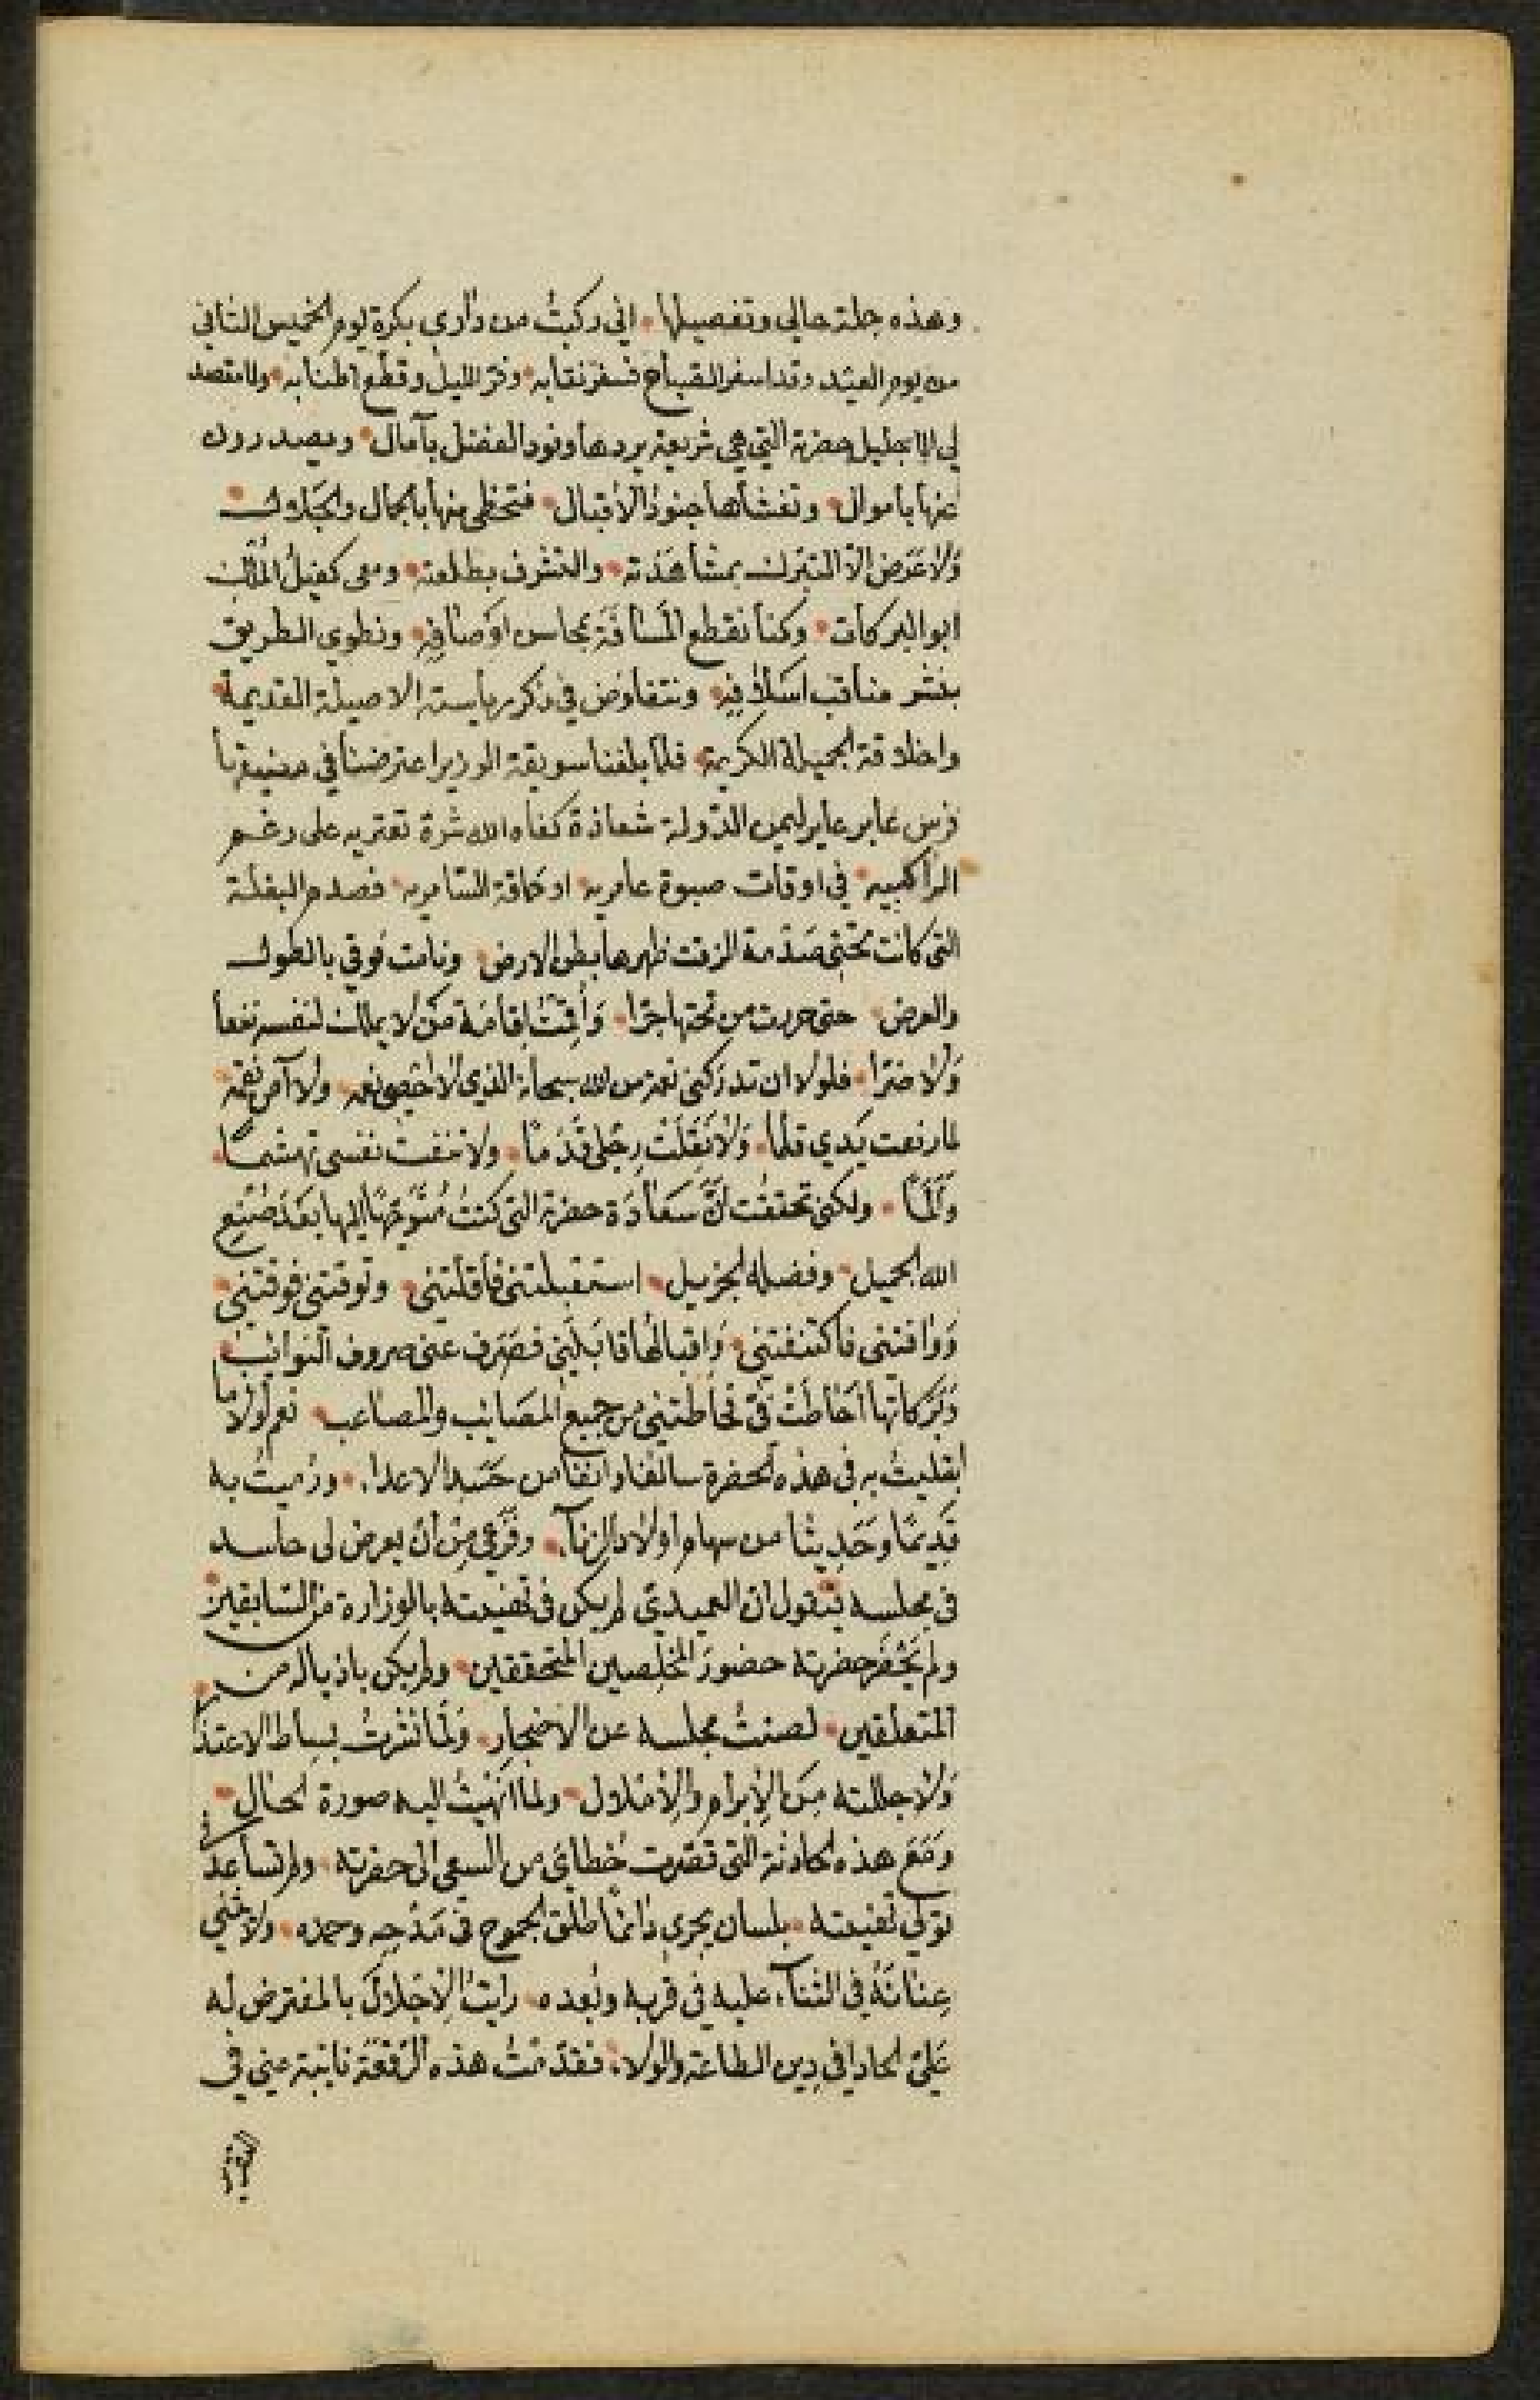 وهذه جملة حالي وتفصيلها • اني ركبتُ من داري بكرة يوم الخميس الثاني
من يوم العيد وقد اسفر الصّباح فسفر نقابه • وفرّ الليل وقطع اطنابه • ولا مقصد
لي الا جليل حضرته التي هي شريعة يردها وفود الفضل بآمال • ويصدرون
عنها باموال • وتغشاها جنود الاقبال • فتحظى منها بالجمال والجلال
ولا غرض الّا التبرك بمشاهدته • والتشرف بطلعته • ومعي كفيل الملك
ابو البركات • وكنا نقطع المسافة بمحاسن اوصافه • ونطوي الطريق
بنشر مناقب اسلافه • ونتفاوض في ذكر رياسته الاصيلة القديمة •
واخلاقه الجميلة الكريمة • فلما بلغنا سويقة الوزير اعترضنا في مضيقها
فرس عابر عاير ليمين الدّولة شعاذة كفاه الله شرة تعتريه على رغم
الراكبيه • في اوقات صبوة عامرية • او حماقة السّامريه • فصدم البغلة
التي كانت تحتي صدمة الزقت ظهرها ببطن الارض • ونامت فوقي بالطول
والعرض • حتى حررت من تحتها جرّا • وأقمتُ اقامة من لا يملك لنفسه نفعا
ولا ضرّا • فلولا ان تدركني نعمة من الله سبحانه الذي لا احصي نعمه • ولا آمن نقمه
لما رفعت يدي قلما • ولا نقلت رجلي قدما • ولا تنفّست نفسي تهشّما •
وألما • ولكني تحققت انّ سعادة حضرته التي كنتُ متوجّها اليها بعد صنع
الله الجميل • وفضله الجزيل • استقبلتني فأقلتني • وتوقتني فوقتني •
ووافتني فاكتنفتني • واقبالها قابلني فصرف عني صروف النوائب •
وبركاتها احاطت بي فحاطتني من جميع المصائب والمصاعب • نعم لولا ما
ابتليتُ به في هذه الحضرة سالفا وانفا من حسد الاعداء • ورُميتُ به
قديمًا وحديثا من سهام اولاد الزناء • وفزعي من أن يعرض لي حاسد
في مجلسه فيقول ان العميدي لم يكن في تهنيته بالوزارة من السّابقين •
ولم يحضر حضرته حضور المخلصين المتحققين • ولم يكن باذياله من
المتعلّقين • لصنتُ مجلسه عن الاضجار • ولما نشرتُ بساط الاعتذار
ولاجللته من الإبرام والإملال • ولما انهيتُ اليه صورة الحال •
ومع هذه الحادثة التي قصّرت خطاي من السعي الى حضرته • ولم تساعدني
توفّي تهنيته • بلسان يجري دائمًا طلق الجموح في مدحه وحمده • ولا يثني
عنانَهُ في الثناء عليه في قربه وبُعده • رايتُ الاخلال بالمفترض له
عليّ الحادا في دين الطاعة والولاء • فقدّمتُ هذه الرقعة نائبة عني في